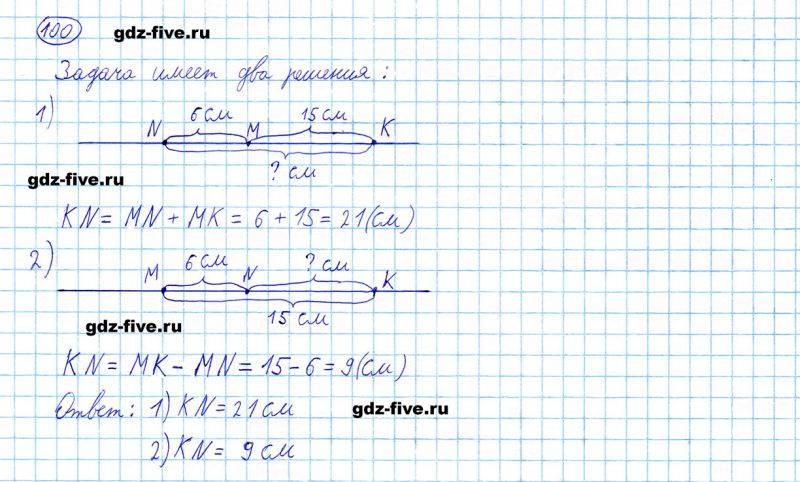 100 gdz-five.ru
Задача имеет два решения:
1)
6 см 15 см
N M K
? см
gdz-five.ru
KN = MN + MK = 6 + 15 = 21 (см)
2)
6 см ? см
M N K
15 см
gdz-five.ru
KN = MK - MN = 15 - 6 = 9 (см)
Ответ: 1) KN = 21 см
gdz-five.ru
2) KN = 9 см